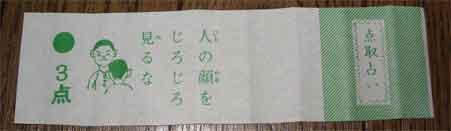 点取占い
人の顔を
じろじろ
見るな
3点